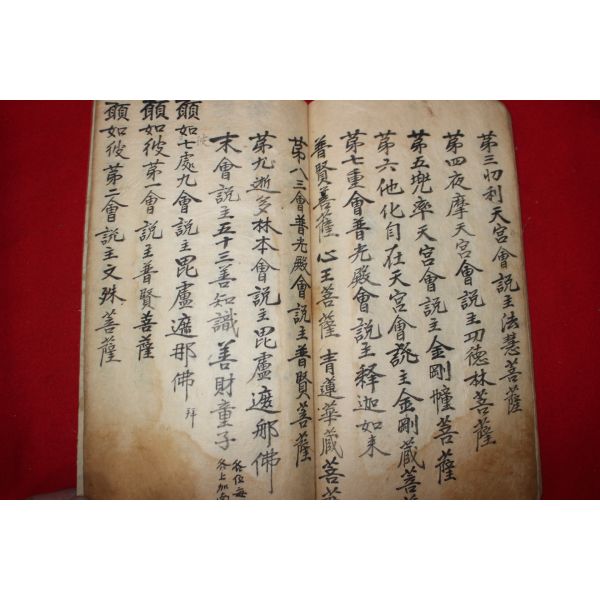 第三忉利天宮會說主法慧菩薩
第四夜摩天宮會說主功德林菩薩
第五兜率天宮會說主金剛幢菩薩
第六他化自在天宮會說主金剛藏菩
第七重會普光殿會說主釋迦如来
普賢菩薩 心王菩薩 青蓮華藏菩
第八三會普光殿會說主普賢菩薩
第九逝多林本會說主毘盧遮那佛
末會說主五十三善知識善財童子
各位每
各上加
願如七處九會說主毘盧遮那佛 拜
彼
願如彼第一會說主普賢菩薩
願如彼第二會說主文殊菩薩